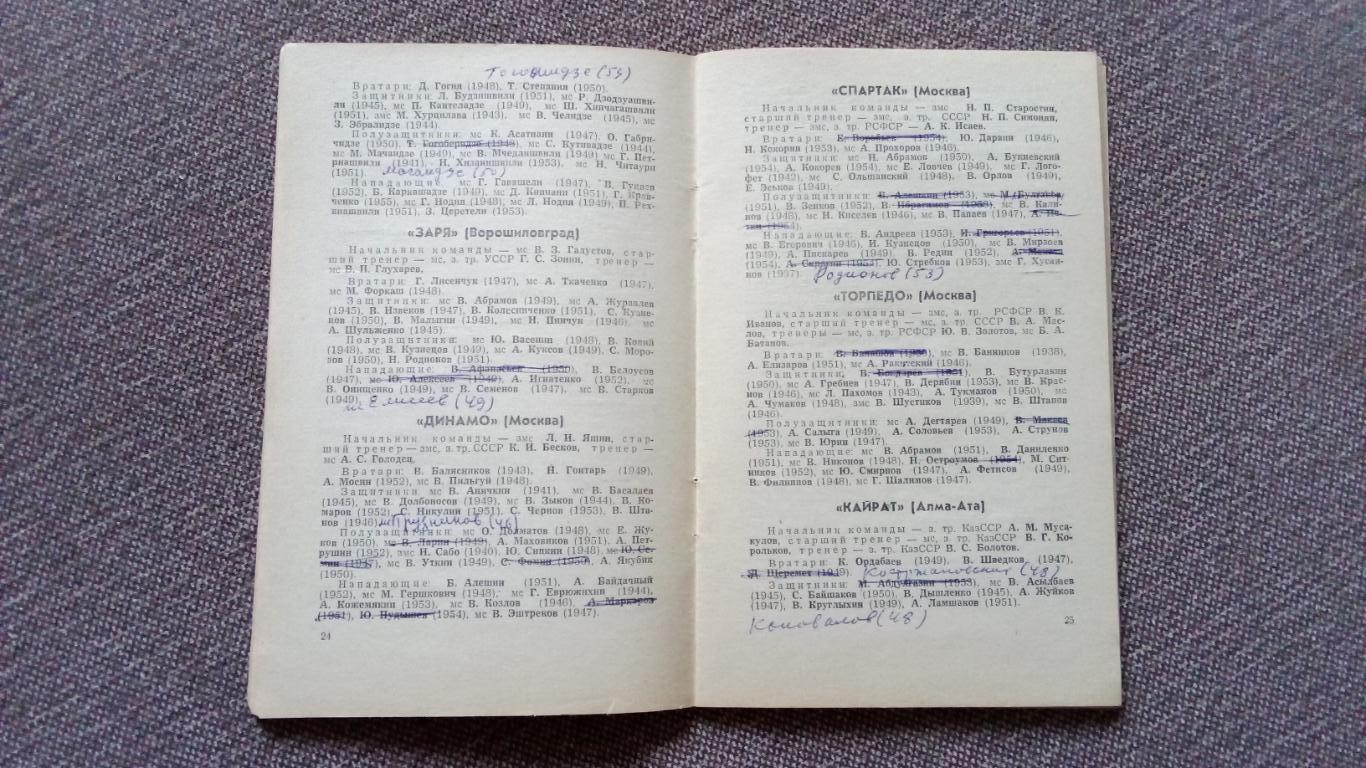 Вратари: Д. Гогия (1948), Т. Степания (1950).
Защитники: Л. Будзишвили (1951), мс Р. Дзодзуашви-
ли (1945), мс П. Кантеладзе (1949), мс Ш. Хинчагашвили
(1951), змс М. Хурцилава (1943), мс В. Челидзе (1945), мс
З. Эбралидзе (1944).
Полузащитники: мс К. Асатиани (1947), О. Габри-
чидзе (1950), Т. Гогоберидзе (1948), мс С. Кутивадзе (1944),
мс М. Мачаидзе (1949), мс В. Мчедлишвили (1949) мс Г. Пет-
риашвили (1941), Н. Хизанишвили (1953), мс Н. Читаури
(1951).
Нападающие: мс Г. Гавашели (1947), В. Гуцаев
(1952), Б. Каркашадзе (1949), мс Д. Кипиани (1951), Г. Крав-
ченко (1955), мс Г. Нодия (1948), мс Л. Нодия (1949), П. Рех-
виашвили (1951), З. Церетели (1953).
«ЗАРЯ» (Ворошиловград)
Начальник команды — мс В. З. Галустов, стар-
ший тренер — мс, з. тр. УССР Г. С. Зонин, тренер —
мс В. П. Глухарев.
Вратари: Г. Лисенчук (1947), мс А. Ткаченко (1947),
мс М. Форкаш (1948).
Защитники: мс В. Абрамов (1949), мс А. Журавлев
(1945), В. Извеков (1947), В. Колесниченко (1951), С. Кузне-
цов (1950), В. Малыгин (1949), мс Н. Пинчук (1946), мс
А. Шульженко (1945).
Полузащитники: мс Ю. Васенин (1948), В. Копий
(1948), мс В. Кузнецов (1949), мс А. Куксов (1949), С. Моро-
зов (1950), Н. Родионов (1951).
Нападающие: В. Афанасьев (1950), В. Белоусов
(1947), мс Ю. Алексеев (1949), А. Игнатенко (1952), мс
В. Онищенко (1949), мс В. Семенов (1947), мс В. Старков
(1949).
мс Елисеев (49)
«ДИНАМО» (Москва)
Начальник команды — змс Л. И. Яшин, стар-
ший тренер — змс, з. тр. СССР К. И. Бесков, тренер —
мс А. С. Голодец.
Вратари: В. Балясников (1943), Н. Гонтарь (1949),
А. Мосин (1952), мс В. Пильгуй (1948).
Защитники: мс В. Аничкин (1941), мс В. Басалаев
(1945), мс В. Долбоносов (1949), мс В. Зыков (1944), В. Ко-
маров (1952), С. Никулин (1951), С. Чернов (1953), В. Шта-
нов (1946)
Полузащитники: мс О. Долматов (1948), мс Е. Жу-
ков (1950), мс В. Ларин (1949), А. Маховиков (1951), А. Пет-
рушин (1952), змс И. Сабо (1940), Ю. Сипкин (1948), мс Ю. Се-
мин (1947), мс В. Уткин (1949), С. Фокин (1950), А. Якубик
(1950).
Нападающие: Б. Алешин (1951), А. Байдачный
(1952), мс М. Гершкович (1948), мс Г. Еврюжихин (1944),
А. Кожемякин (1953), мс В. Козлов (1946), А. Маркаров
(1951), Ю. Пудышев (1954), мс В. Эштреков (1947).
24
«СПАРТАК» (Москва)
Начальник команды — змс Н. П. Старостин,
старший тренер — змс, з. тр. СССР Н. П. Симонян,
тренер — змс, з. тр. РСФСР — А. К. Исаев.
Вратари: Е. Воробьев (1954), Ю. Дарвин (1946),
Н. Кокорин (1953), мс А. Прохоров (1946).
Защитники: мс Н. Абрамов (1950), А. Букиевский
(1954), А. Кокорев (1954), мс Е. Ловчев (1949), мс Г. Лого-
фет (1942), мс С. Ольшанский (1948), В. Орлов (1949),
Е. Эськов (1949).
Полузащитники: В. Алешкин (1953), мс М. Булгаков
(1951), В. Зенков (1952), В. Ибрагимов (1953), мс В. Кали-
нов (1948), мс Н. Киселев (1946), мс В. Папаев (1947),
Нападающие: В. Андреев (1953), И. Григорьев (1951),
мс В. Егорович (1946), И. Кузнецов (1950), мс В. Мирзоев
(1949), А. Пискарев (1949), В. Редин (1952),
(1954), Ю. Стребков (1953), змс Г. Хусаи-
нов (1937).
Родионов (53)
«ТОРПЕДО» (Москва)
Начальник команды — змс, з. тр. РСФСР В. К.
Иванов, старший тренер — мс, з. тр. СССР В. А. Мас-
лов, тренеры — мс, з. тр. РСФСР Ю. В. Золотов, мс Б. А.
Батанов.
Вратари: мс В. Банников (1938),
А. Елизаров (1951), мс А. Ракитский (1946).
Защитники: В. Бондарев (1951), В. Бутурлакин
(1950), мс А. Гребнев (1947), В. Дерябин (1953), мс В. Крас-
нов (1946), мс Л. Пахомов (1943), А. Тукманов (1950), мс
А. Чумаков (1948), змс В. Шустиков (1939), мс В. Штапов
(1946).
Полузащитники: мс А. Дегтярев (1949), В. Макеев
(1953), А. Салыга (1949), А. Соловьев (1953), А. Струков
(1953), мс В. Юрин (1947).
Нападающие: мс В. Абрамов (1951), В. Даниленко
(1951), мс В. Никонов (1948), Н. Остроумов (1954), М. Сит-
ников (1952), мс Ю. Смирнов (1947), А. Фетисов (1949),
В. Филиппов (1948), мс Г. Шалимов (1947).
«КАЙРАТ» (Алма-Ата)
Начальник команды — з. тр. КазССР А. М. Муса-
кулов, старший тренер — мс, з. тр. КазССР В. Г. Ко-
рольков, тренер — з. тр. КазССР В. С. Болотов.
Вратари: К. Ордабаев (1949), В. Шведков (1947),
Д. Шеремет (1949).
Защитники: М. Абдулгазин (1953), мс В. Асылбаев
(1945), С. Байшаков (1950), В. Дышленко (1945), А. Жуйков
(1947), В. Круглыхин (1949), А. Ламшаков (1951).
Коновалов (48)
25